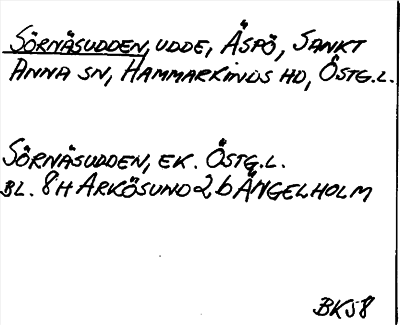 SÖRNÄSUDDEN, UDDE, ÄSPÖ, SANKT
ANNA SN, HAMMARKINDS HD, ÖSTG.L.
SÖRNÄSUDDEN, EK. ÖSTG.L.
BL. 8H ARKÖSUND 2b ÄNGELHOLM
BK58